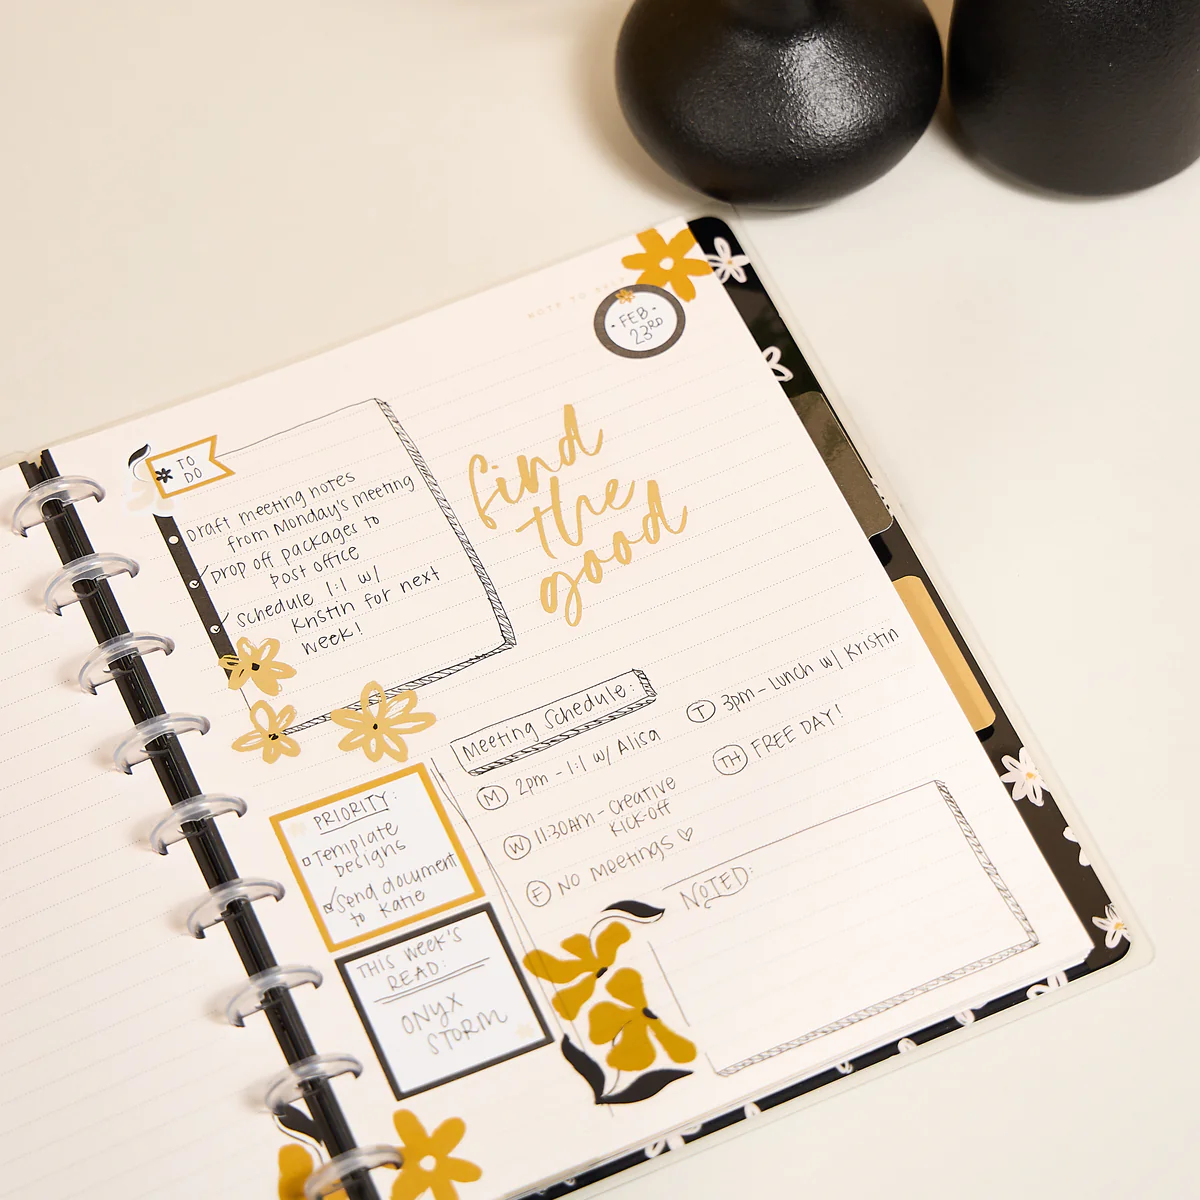 NOTE TO SELF
FEB
23RD
TO
DO
Draft meeting notes
from Monday's meeting
Drop off packages to
post office
Schedule 1:1 w/
Kristin for next
week!
find
the
good
Meeting Schedule:
M 2pm - 1:1 w/ Alisa
T 3pm - Lunch w/ Kristin
W 11:30AM - Creative
Kick-off
TH FREE DAY!
F NO Meetings ♡
PRIORITY:
Template
Designs
Send document
to Katie
THIS WEEK'S
READ:
ONYX
STORM
NOTED: